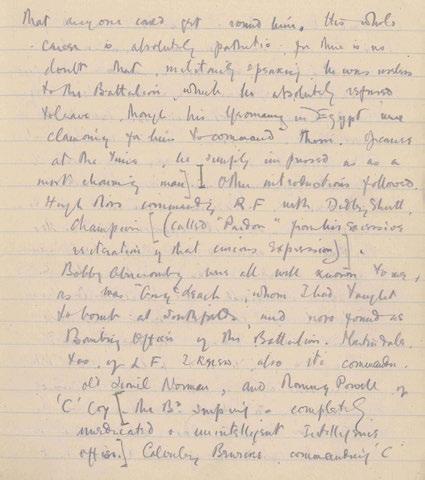 that anyone could get round him. His whole
career is absolutely pathetic for there is no
doubt that, militarily speaking, he was useless
to the Battalion, which he absolutely refused
to leave though his Yeomanry in Egypt were
clamouring for him to command them. Of course
at the time, he simply impressed as as a
most charming man] Other introductions followed.
Hugh Ross commanding R.F. with Dudley
Champion [(called "Pardon" from his excessive
reiteration of that curious expression)].
Bobby Abercromby were all well known to me,
as was "Long" , whom I had taught
to bomb at Southfields, and now found as
Bombing Officer of this Battalion. Martindale
too, of L.F. also its commander.
old Norman, and Ronny Powell of
'C' Coy [the Bn a completely
uneducated & unintelligent Intelligence
officer.] commanding 'C'